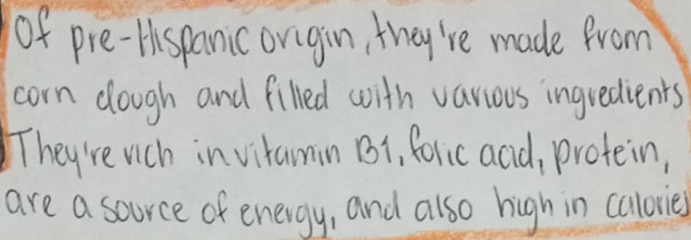 Of pre-Hispanic origin, they're made from
corn dough and filled with various ingredients
They're rich in vitamin B1, folic acid, protein,
are a source of energy, and also high in calories